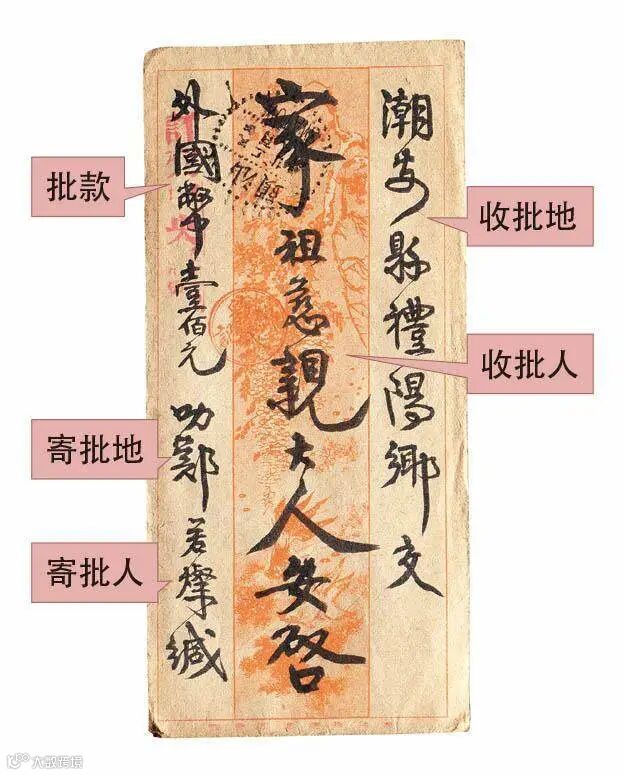 潮安縣禮陽鄉交
家祖慈親大人安啓
外國幣壹佰元
叻鄭若燦緘
批款
收批地
收批人
寄批地
寄批人
大数跨境